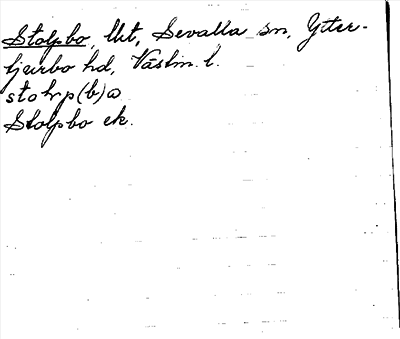 Stolpbo, lht, Sevalla sn, Ytter-
tjurbo hd, Västm. l.
stolrp(b)ω
Stolpbo ek.